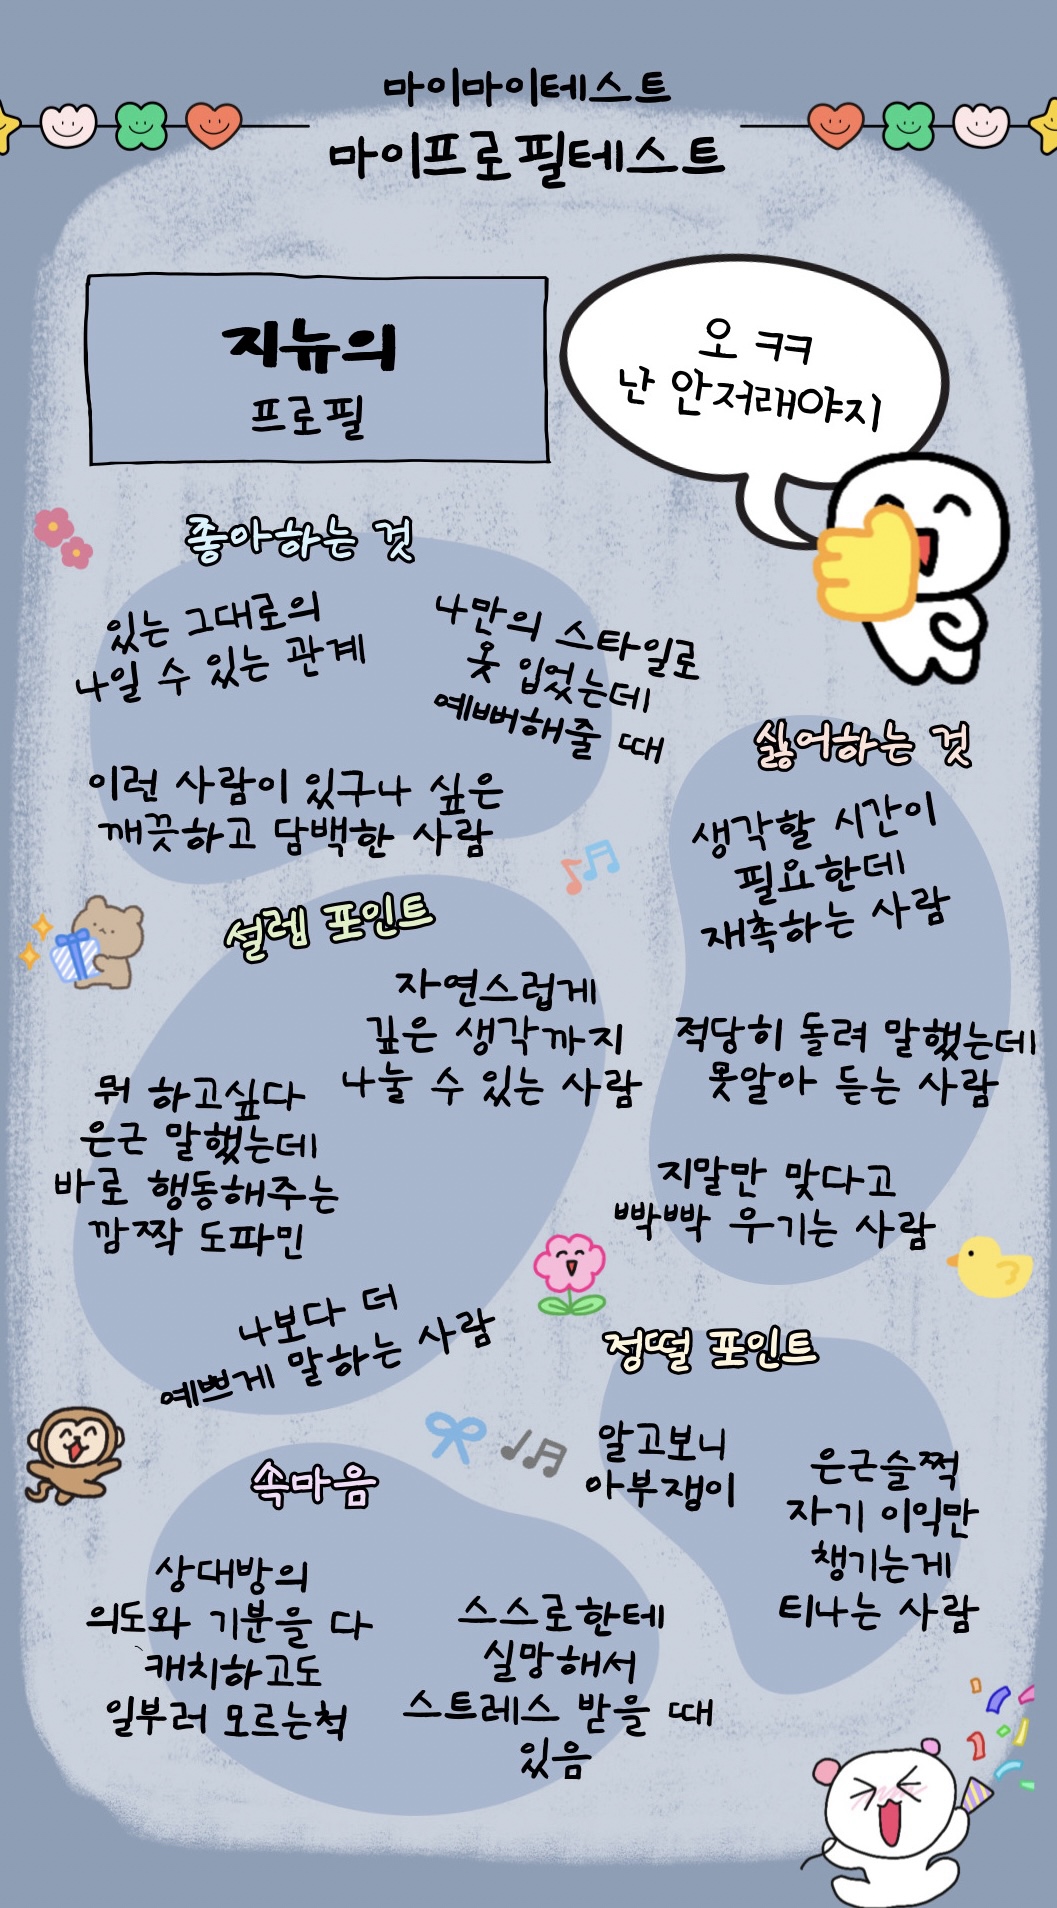 마이마이테스트
마이프로필테스트
지뉴의
프로필
오 ㅋㅋ
난 안저래야지
좋아하는 것
있는 그대로의
나일 수 있는 관계
나만의 스타일로
옷 입었는데
예뻐해줄 때
이런 사람이 있구나 싶은
깨끗하고 담백한 사람
싫어하는 것
생각할 시간이
필요한데
재촉하는 사람
적당히 돌려 말했는데
못알아 듣는 사람
지말만 맞다고
빡빡 우기는 사람
설렘 포인트
자연스럽게
깊은 생각까지
나눌 수 있는 사람
뭐 하고싶다
은근 말했는데
바로 행동해주는
깜짝 도파민
나보다 더
예쁘게 말하는 사람
정떨 포인트
알고보니
아부쟁이
은근슬쩍
자기 이익만
챙기는게
티나는 사람
속마음
상대방의
의도와 기분을 다
캐치하고도
일부러 모르는척
스스로한테
실망해서
스트레스 받을 때
있음